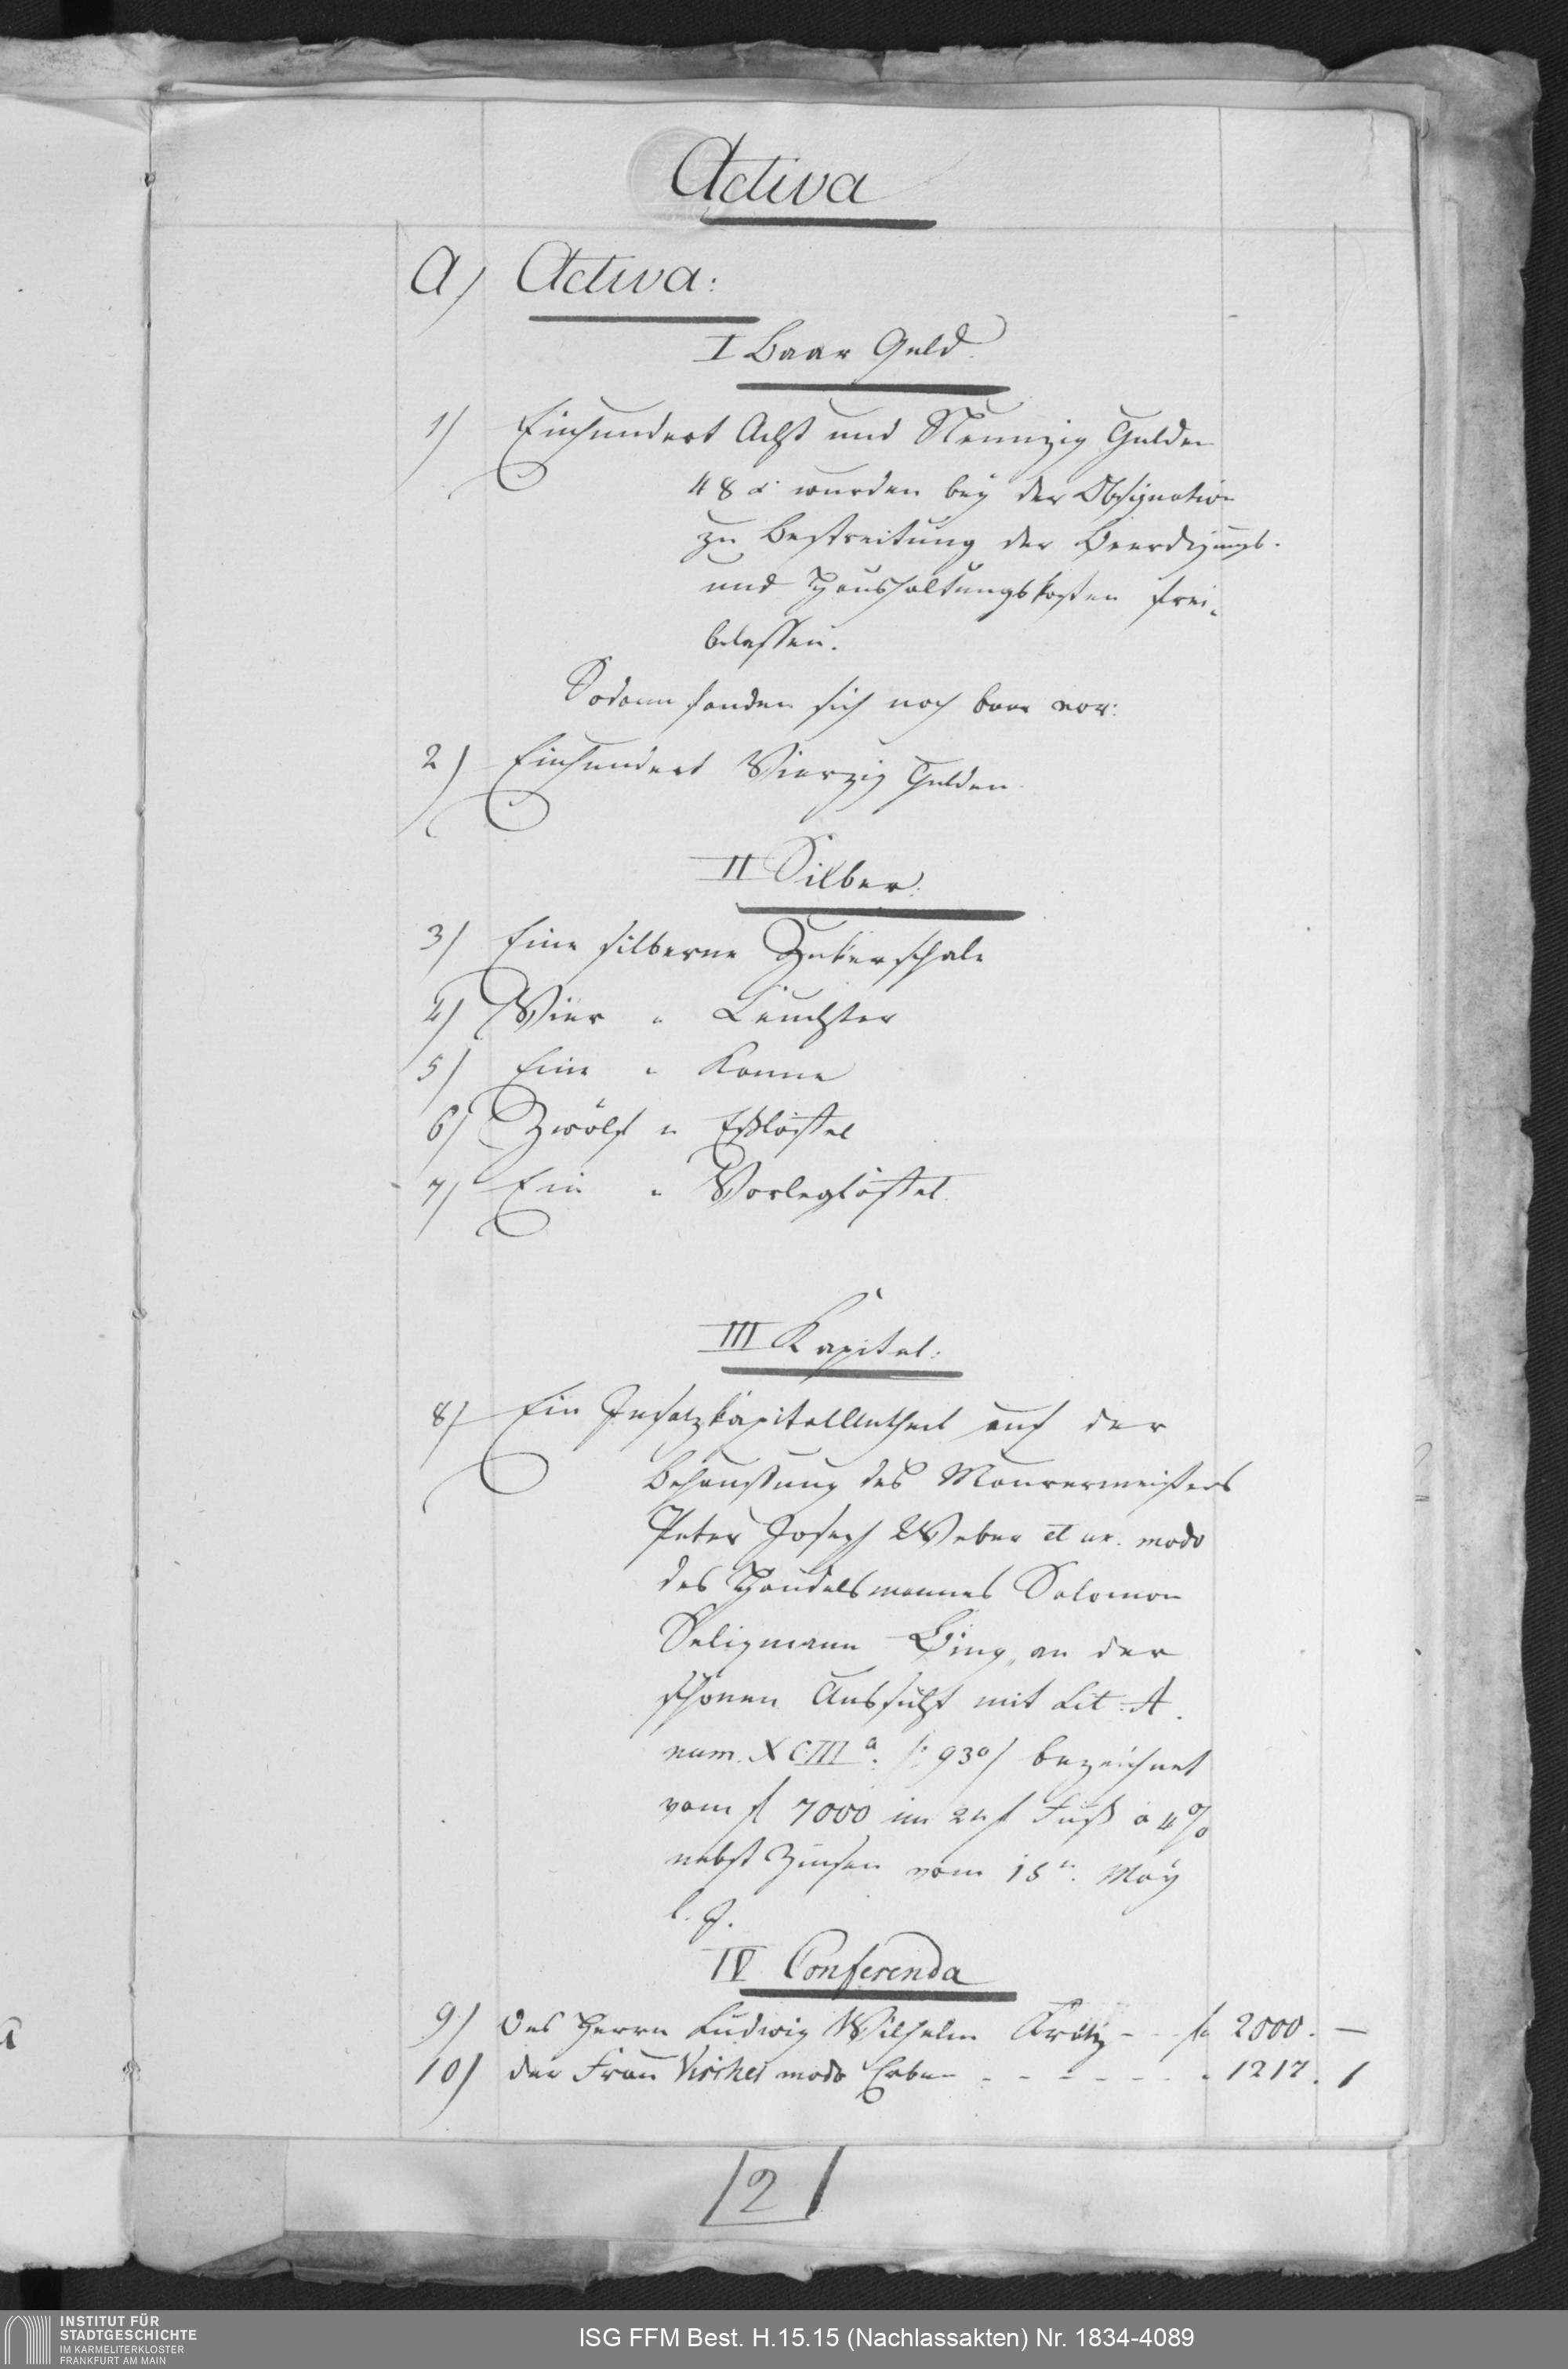 Activa
A) Activa:
I Baar Geld.
1) Einhundert Acht und Neunzig Gulden
48 x wurden bey der Obsignation
zu Bestreitung der Beerdigungs-
und Haushaltungskosten frei-
belassen.
Sodann fanden sich noch baar vor:
2) Einhundert Vierzig Gulden
II Silber:
3) Eine silberne Zukerschale
4) Vier " Leuchter
5) Eine " Kanne
6) Zwölf " Eßlöffel
7) Ein " Vorleglöffel
III Kapital:
8) Ein Insatzkapitalantheil auf der
Behaußung des Maurermeisters
Peter Joseph Weber et ux. modo
des Handelsmannes Salomon
Seligmann Bing, an der
schönen Aussicht mit Lit. A.
num. XCIII a. /: 93a / bezeichnet
vom fl 7000 im 24 fl Fuß a 4%
nebst Zinsen vom 15n. May
l. J.
IV Conferenda
9) Des Herrn Ludwig Wilhelm - - fl 2000. —
10) der Frau modo Erben - - - - - - " 1217. 1
2
INSTITUT FÜR
STADTGESCHICHTE
IM KARMELITERKLOSTER
FRANKFURT AM MAIN
ISG FFM Best. H.15.15 (Nachlassakten) Nr. 1834-4089